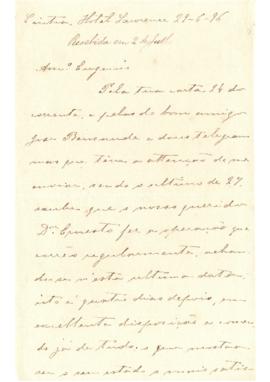 Cintra, Hotel Lawrence 29-6-96
Recebida em 2 de Julh.
Am.º Eugenio
Pela tua carta, 24 do
corrente, e pelas do bom amigo
João Benevende e dous telegram
mas que, teve a attenção de me
enviar, sendo o ultimo de 27,
soube que o nosso querido
Dr. Ernesto fez a operação que
correu regularmente, achan
do-se n'esta ultima data,
isto é quatro dias depois, em
excellente disposição e comen
do já de tudo, o que mostra
ser o seu estado o mais satis